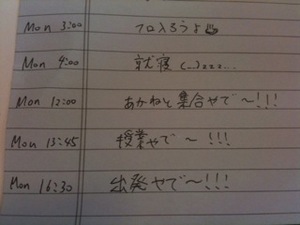 Mon 3:00 フロ入ろうよ♨
Mon 4:00 就寝 (...)zzz...
Mon 12:00 あかねと集合やで〜!!!
Mon 13:45 授業やで〜 !!!
Mon 16:30 出発やで〜!!!